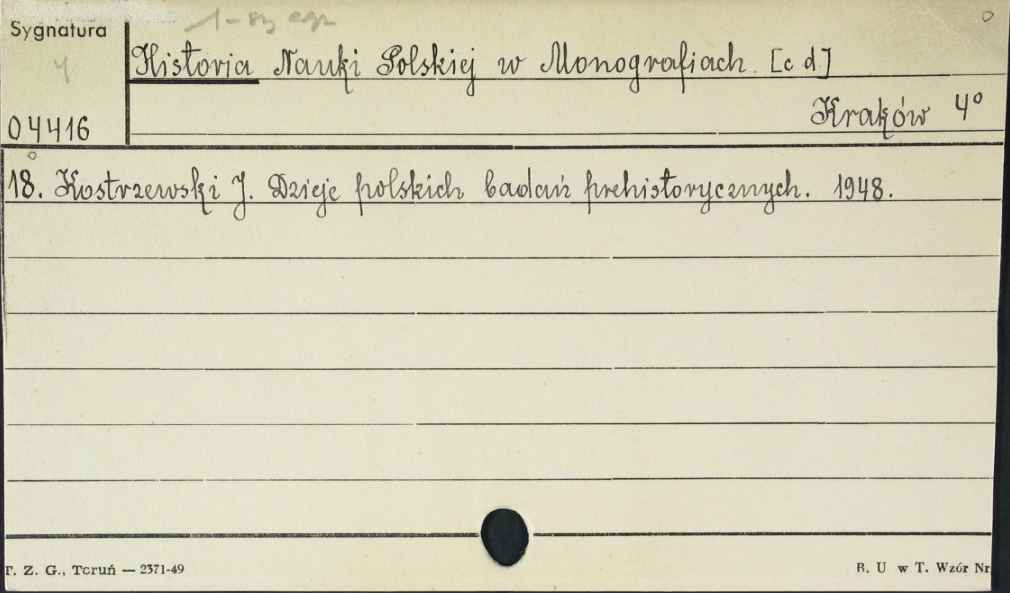 1-szy egz
Sygnatura
4
Historja Nauki Polskiej w Monografiach. [c d]
04416
Kraków 4°
18. Kostrzewski J. Dzieje polskich badań prehistorycznych. 1948.
T. Z. G., Toruń — 2371-49
B. U w T. Wzór Nr